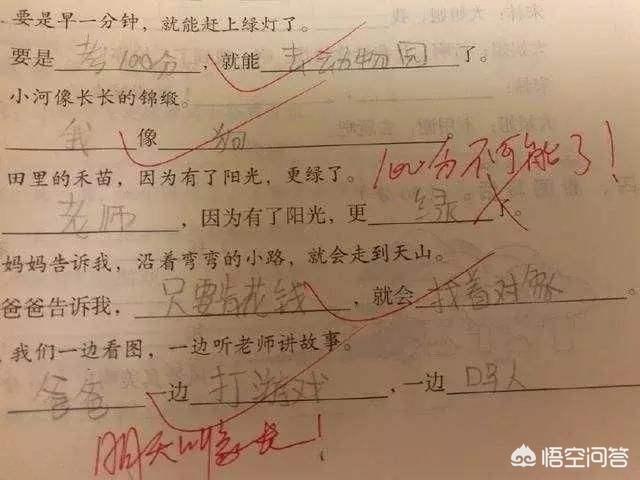 要是早一分钟，就能赶上绿灯了。
要是考100分，就能去动物园了。
小河像长长的锦缎。
我像狗
100分不可能了！
田里的禾苗，因为有了阳光，更绿了。
老师，因为有了阳光，更绿了。
妈妈告诉我，沿着弯弯的小路，就会走到天山。
爸爸告诉我，只要肯花钱，就会找着对象。
我们一边看图，一边听老师讲故事。
爸爸一边打游戏，一边骂人
明天叫家长！
悟空问答